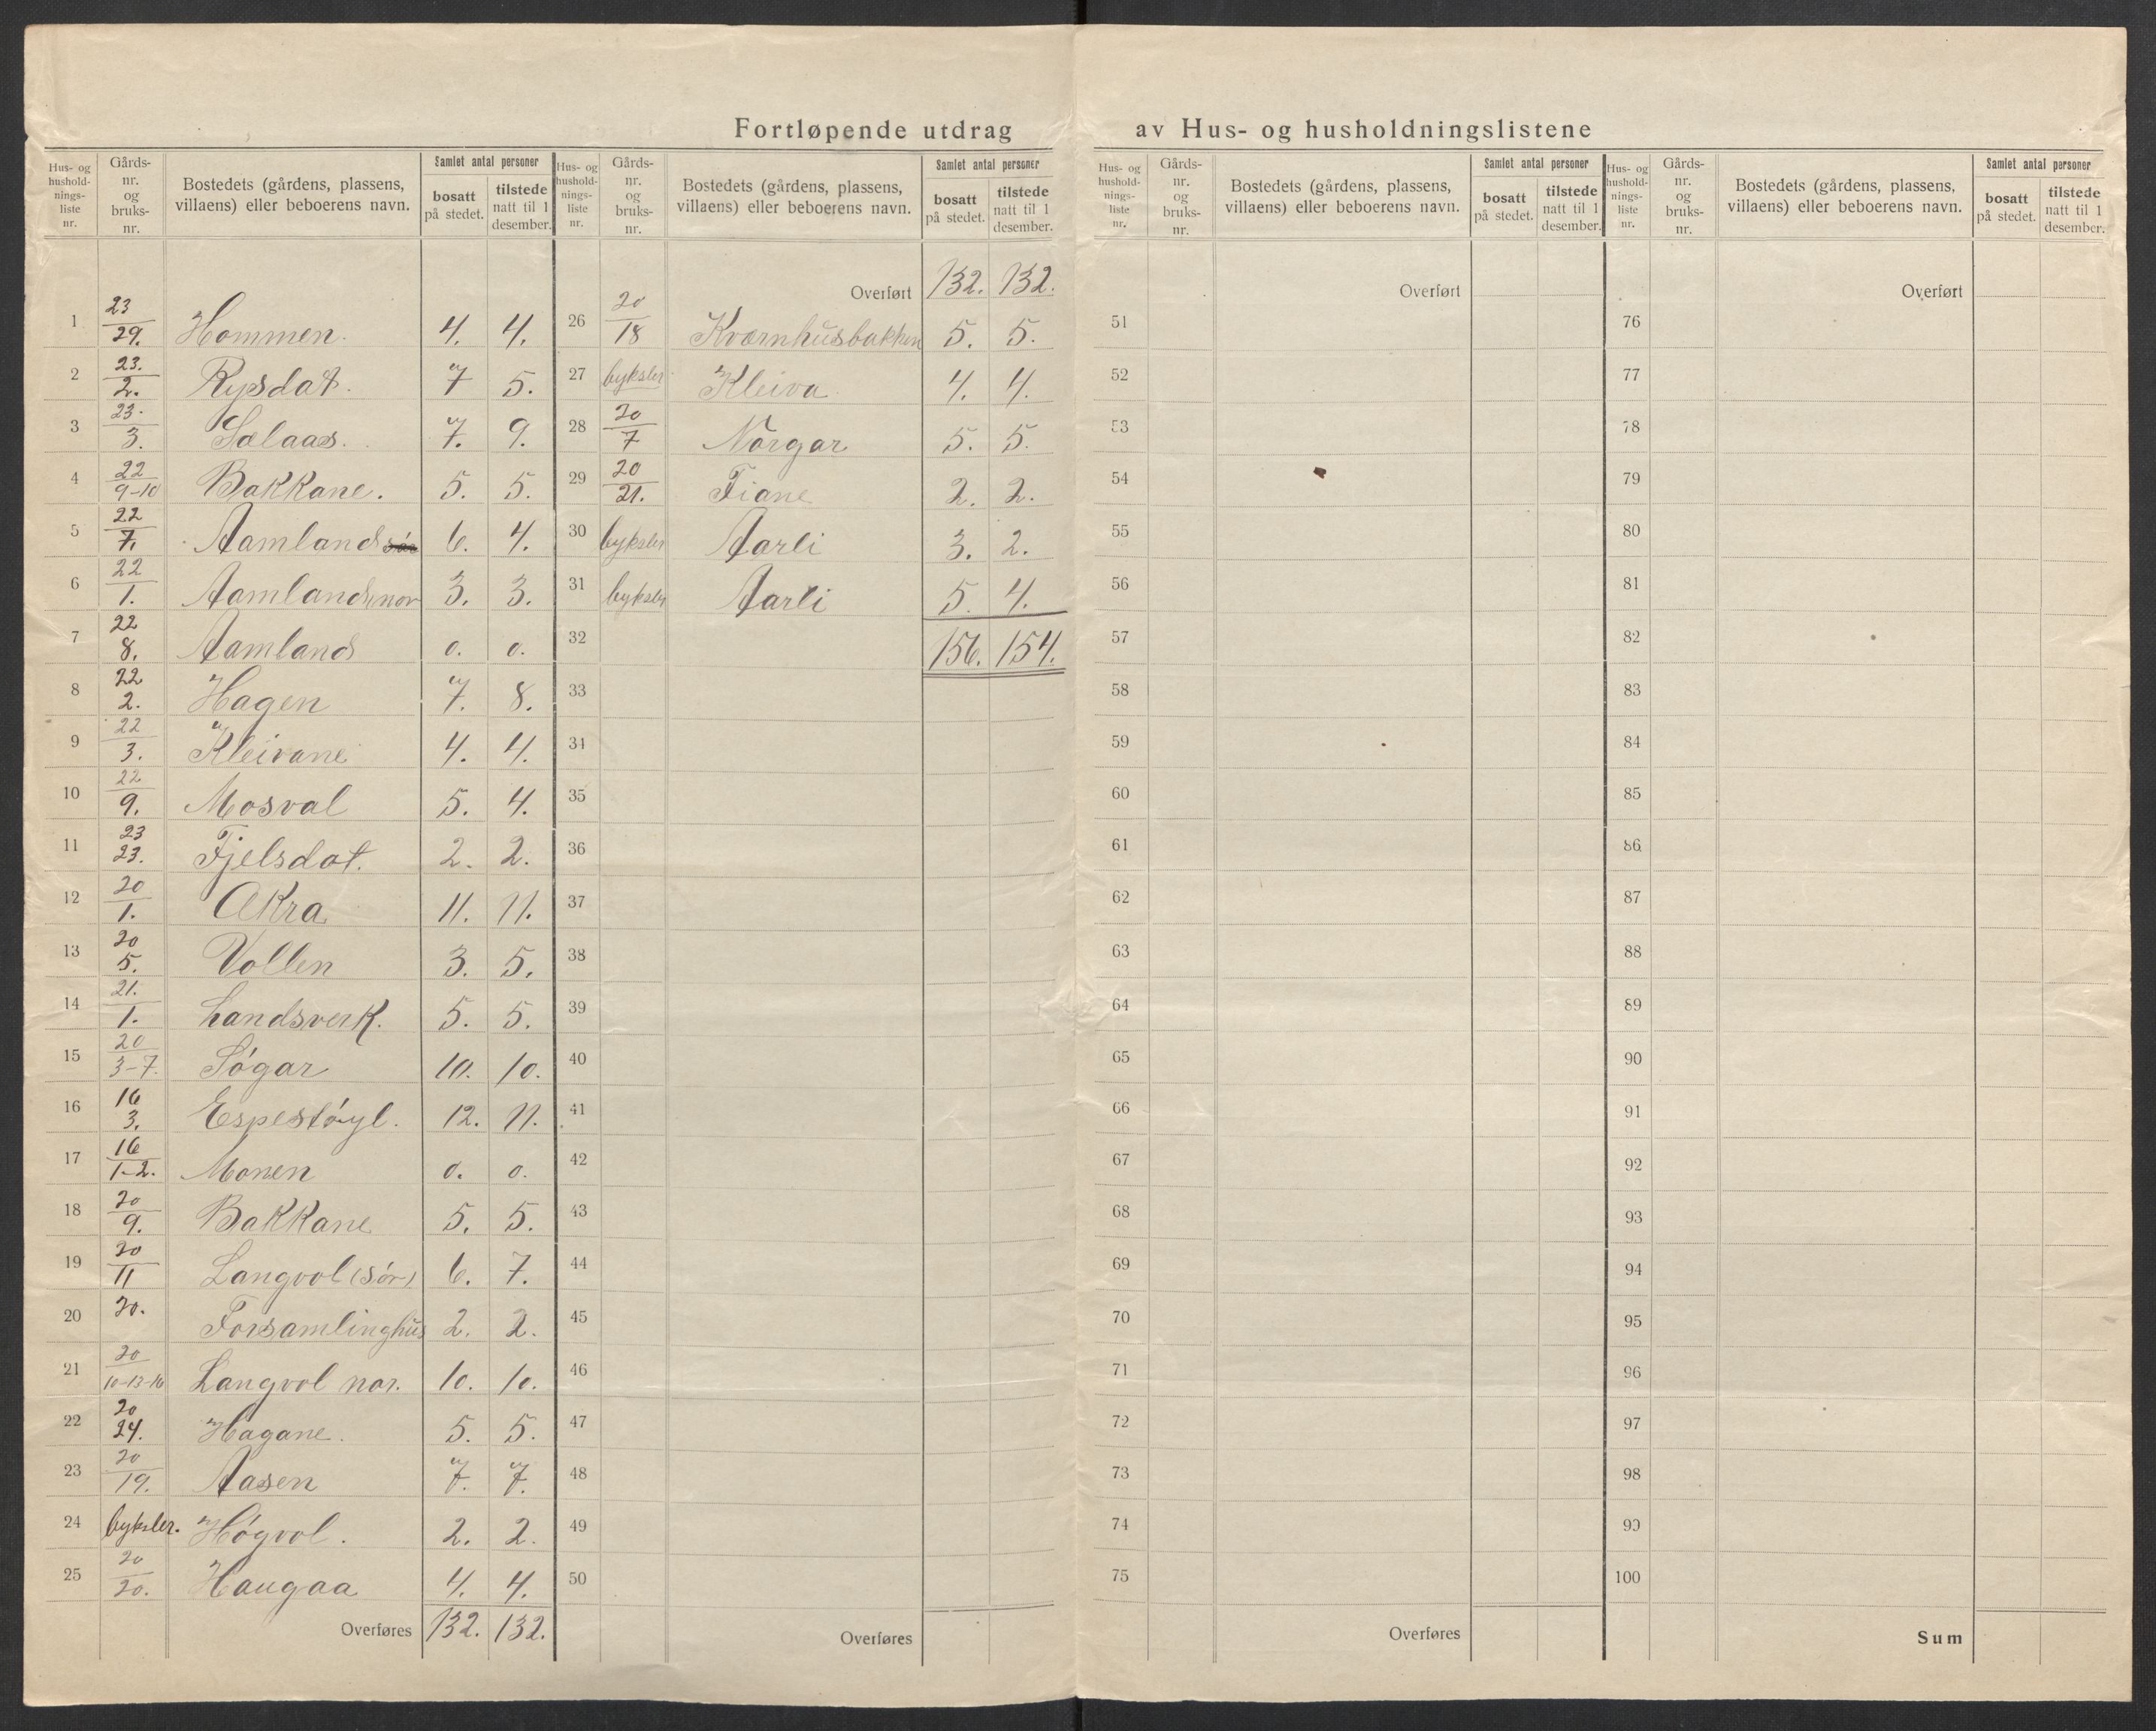 Fortløpende utdrag av Hus- og husholdningslistene
Hus- og husholdnings-liste nr. | Gårds-nr. og bruks-nr. | Bostedets (gårdens, plassens, villaens) eller beboerens navn. | Samlet antal personer bosatt på stedet. | tilstede natt til 1 desember.
1 23/29. Hommen. 4. 4.
2 23./2. Rysdat. 7 5.
3 23./3. Sælaas. 7. 9.
4 22/9-10 Bakkane. 5. 5.
5 22/7. Aamland 6. 4.
6 22/1. Aamland, nor 3. 3.
7 22/8. Aamland 0. 0.
8 22/2. Hagen 7. 8.
9 22/3. Kleivane 4. 4.
10 22/9. Mosval 5. 4.
11 23/23. Fjelsdat. 2. 2.
12 20/1. Økra 11. 11.
13 20/5. Vollen 3. 5.
14 21./1. Landsverk. 5. 5.
15 20/3-7. Søgar 10. 10.
16 16/3. Espestøyl. 12. 11.
17 16/1-2. Monen 0. 0.
18 20/9. Bakkane 5. 5.
19 20/11 Langvol (sør) 6. 7.
20 20. Forsamlinghus 2. 2.
21 20/10-13-16 Langvol nor. 10. 10.
22 20/24. Hagane. 5. 5.
23 20/19. Aasen 7. 7.
24 byksler. Høgvol. 2. 2.
25 20/20. Haugaa 4. 4.
Overføres 132. 132.
Hus- og husholdnings-liste nr. | Gårds-nr. og bruks-nr. | Bostedets (gårdens, plassens, villaens) eller beboerens navn. | Samlet antal personer bosatt på stedet. | tilstede natt til 1 desember.
Overført 132. 132.
26 20/18 Kværnhusbakken 5. 5.
27 byksler Kleiva 4. 4.
28 20/7 Norgar 5. 5.
29 20/21. Tiane 2. 2.
30 byksler Aarli 3. 2.
31 byksler Aarli 5. 4.
32 156. 154.
33
34
35
36
37
38
39
40
41
42
43
44
45
46
47
48
49
50
Overføres
Hus- og husholdnings-liste nr. | Gårds-nr. og bruks-nr. | Bostedets (gårdens, plassens, villaens) eller beboerens navn. | Samlet antal personer bosatt på stedet. | tilstede natt til 1 desember.
Overført
51
52
53
54
55
56
57
58
59
60
61
62
63
64
65
66
67
68
69
70
71
72
73
74
75
Overføres
Hus- og husholdnings-liste nr. | Gårds-nr. og bruks-nr. | Bostedets (gårdens, plassens, villaens) eller beboerens navn. | Samlet antal personer bosatt på stedet. | tilstede natt til 1 desember.
Overført
76
77
78
79
80
81
82
83
84
85
86
87
88
89
90
91
92
93
94
95
96
97
98
99
100
Sum